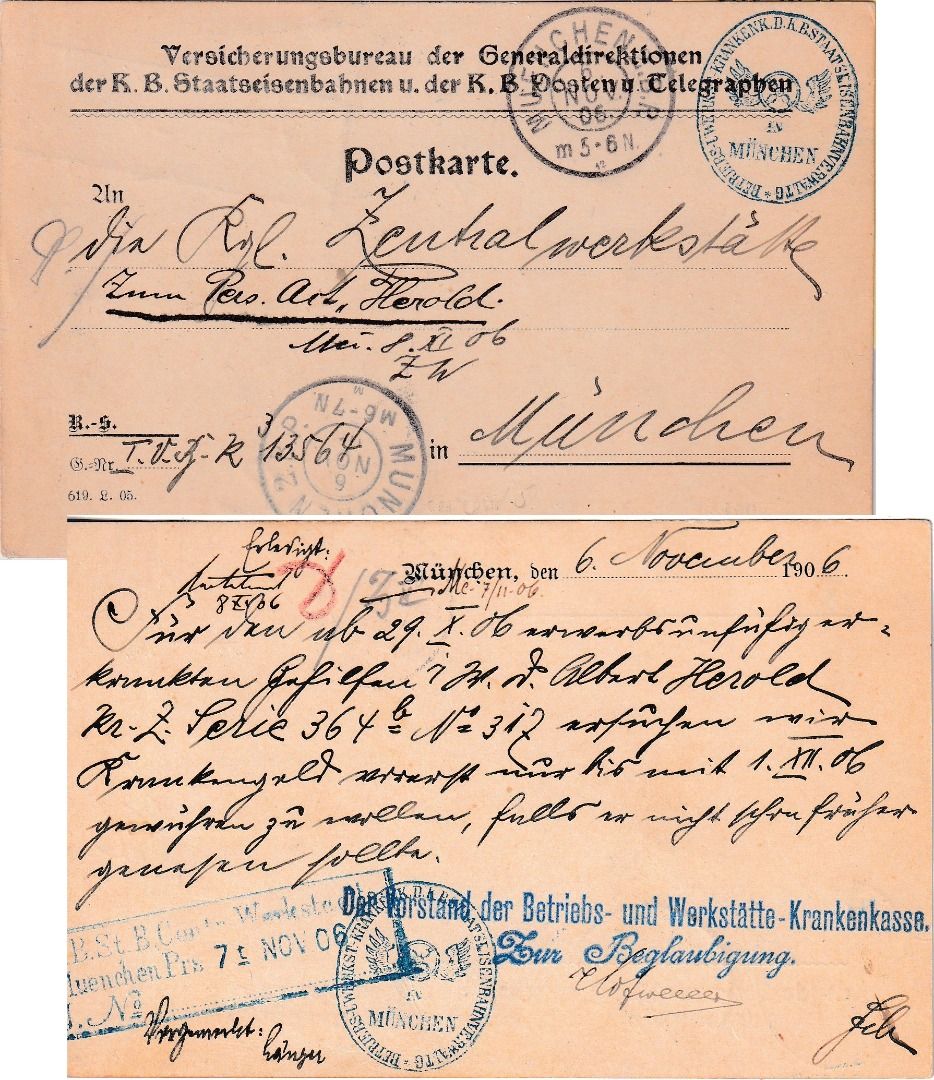 Versicherungsbureau der Generaldirektionen
der K. B. Staatseisenbahnen u. der K. B. Posten u. Telegraphen
MUENCHEN
NOV.
06.
m 5-6 N.
BETRIEBS- U WERKST-KRANKENK. D. K. B. STAATSEISENBAHNVERWALTG
IN
MÜNCHEN
Postkarte.
An
die Kgl. Zentralwerkstätte
Zum Pers. Act „Herold.
8. XI 06
ZW
MÜNCHEN 2.
NOV
M6-7N.
R.-S.
G.-Nr. 13564
in München
619. L. 05.
Erledigt:
8 XI 06
München, den 6. November 1906.
7/11.06.
Für den ab 29. X. 06 erwerbsunfähig er-
krankten Gehilfen i. W. d. Albert Herold
Kr. Z. Serie 364b No 317 ersuchen wir
Krankengeld vorerst nur bis mit 1. XII. 06
gewähren zu wollen, falls er nicht schon früher
genesen sollte.
Der Vorstand der Betriebs- und Werkstätte-Krankenkasse.
Zur Beglaubigung.
B. St. B. Centr. Werkstaette
Muenchen Prs 7 NOV 06
No
BETRIEBS- U WERKST-KRANKENK. D. K. B. STAATSEISENBAHNVERWALTG
IN
MÜNCHEN
Vorgemerkt: